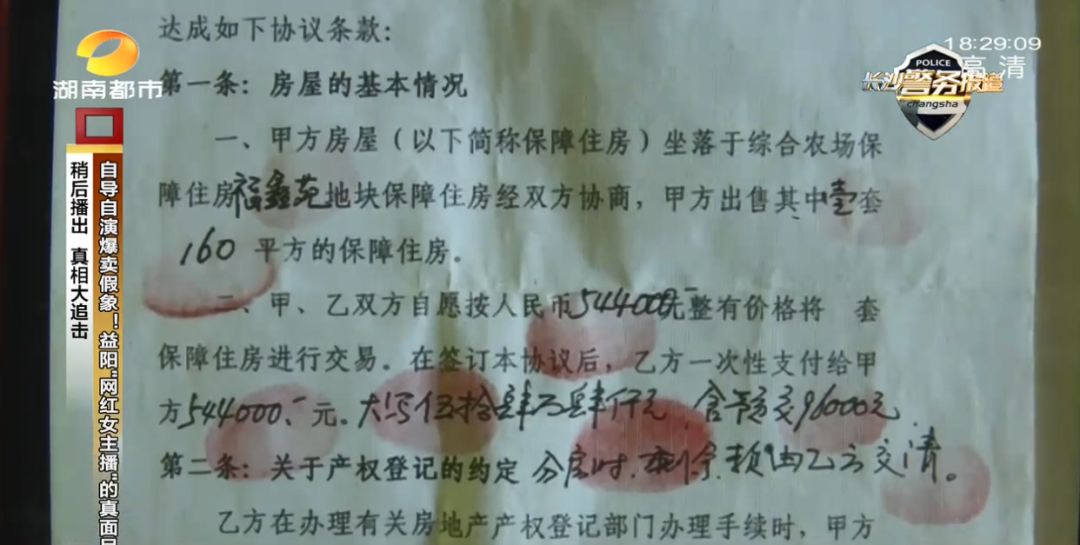 达成如下协议条款：
第一条：房屋的基本情况
一、甲方房屋（以下简称保障住房）坐落于综合农场保
障住房福鑫苑地块保障住房经双方协商，甲方出售其中壹套
160平方的保障住房。
二、甲、乙双方自愿按人民币544000元整有价格将 套
保障住房进行交易。在签订本协议后，乙方一次性支付给甲
方544000元。大写伍拾肆万肆仟元 含 交96000元
第二条：关于产权登记的约定 分房时.剩余款由乙方交清。
乙方在办理有关房地产产权登记部门办理手续时，甲方
湖南都市
稍后播出 真相大追击
自导自演爆卖假象！益阳“网红女主播”的真面
18:29:09
高清
POLICE
长沙警务报道
changsha